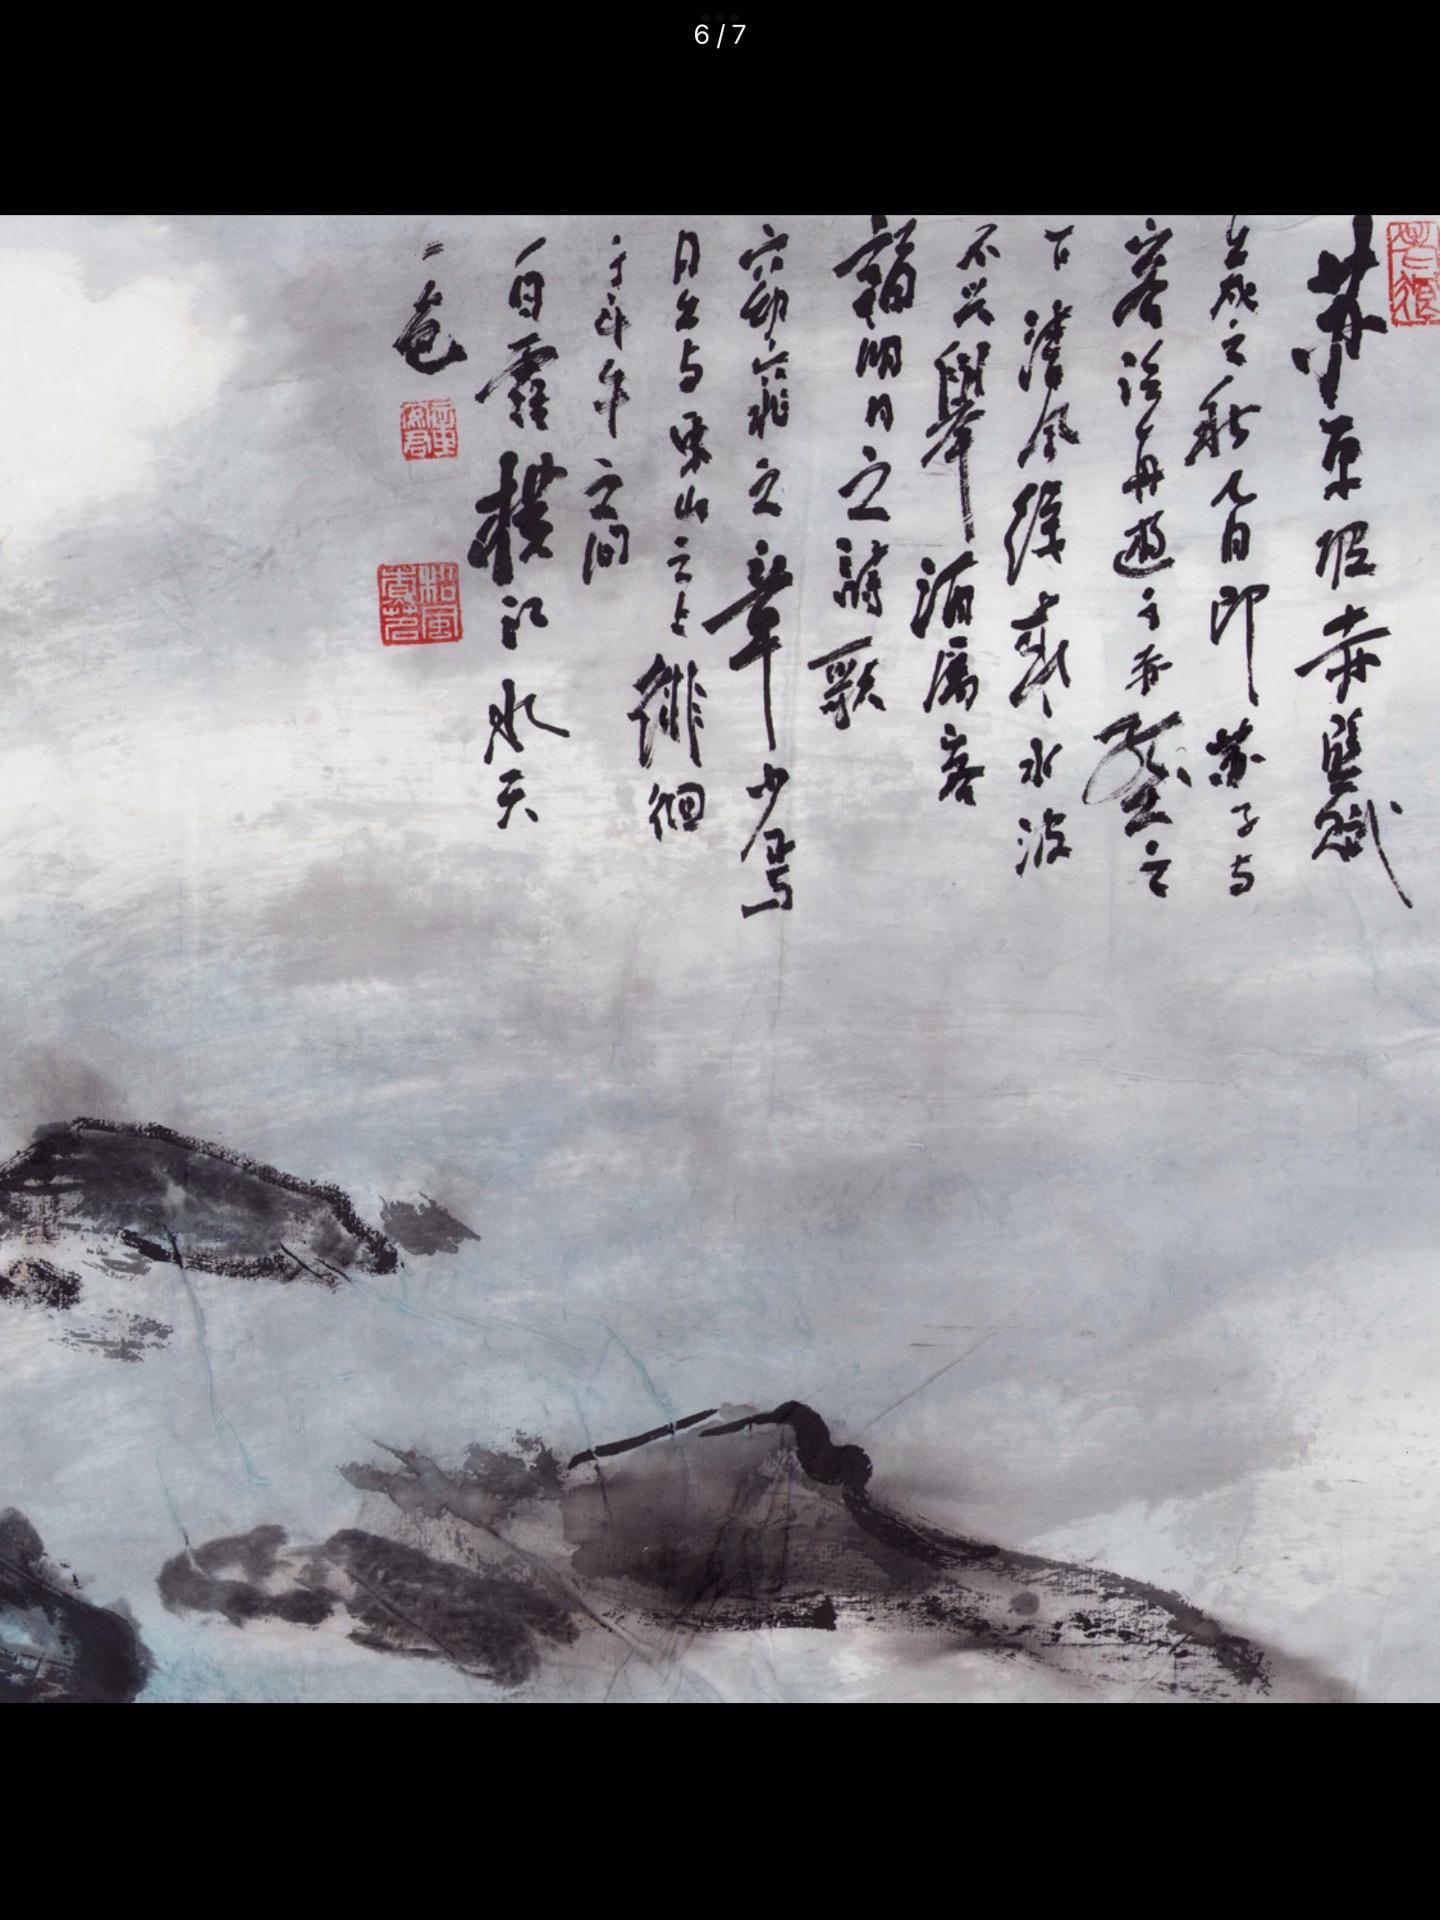 6 / 7
苏东坡赤壁赋
壬戌之秋七月即苏子与
客泛舟遊于赤壁之
下清风徐来水波
不兴舉酒属客
誦明月之詩歌
窈窕之章少焉
月出与東山之上徘徊
于斗牛之间
白露横江水天
一色